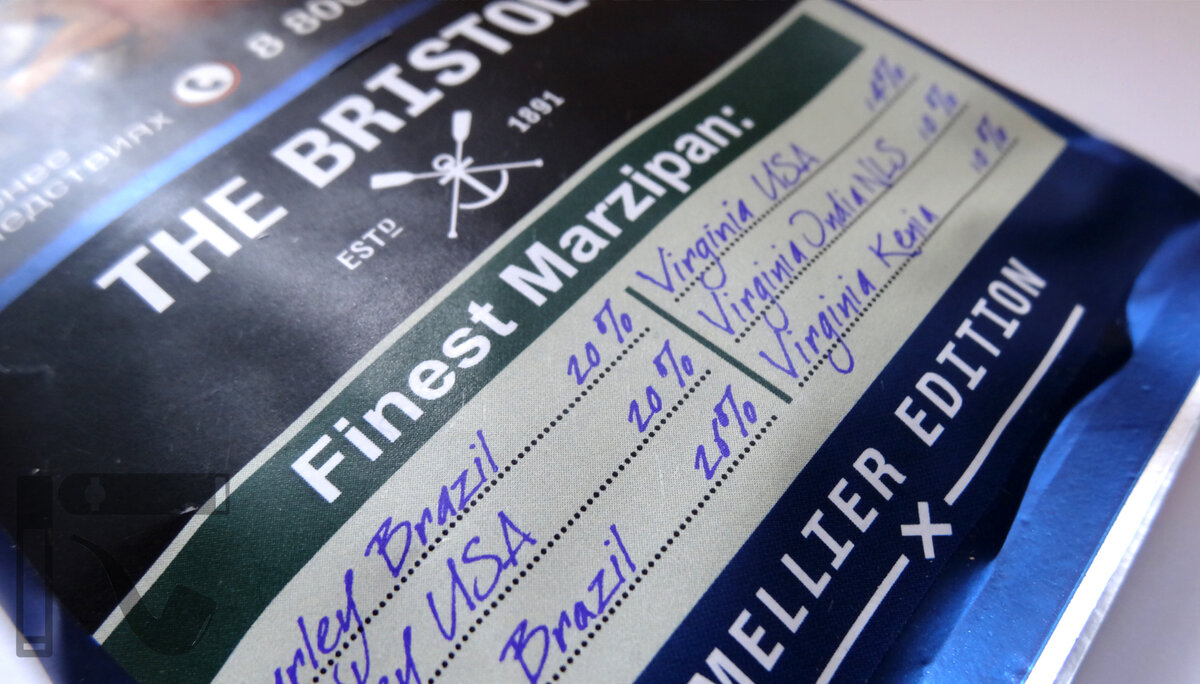 8 800
едствиях
THE BRISTOL
ESTD 1891
Finest Marzipan:
urley Brazil 20%
ey USA 20%
Brazil 26%
Virginia USA 14%
Virginia India NLS 10%
Virginia Kenia 10%
MELLIER EDITION
X